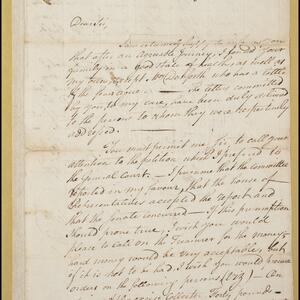 Dear Sir,
I am extremely happy to inform you
that after an agreeable journey, I found your
family in a good state of health as well as
my own except who has a little
of the The letters committed
by you to my care, have been duly delivered
to the persons to whom they were respectively
addressed.
You must permit me, Sir, to call your
attention to the petition which I preferred to
the general court. I presume that the committee
reported in my favour, that the house of
Representatives accepted the report and
that the Senate concurred If this presumption
should prove true, I wish you would
please to call on the Treasurer for the money
hard money would be very acceptable; but
if it is not to be had, I wish you would procure
orders on the following persons
Collector Forty pounds